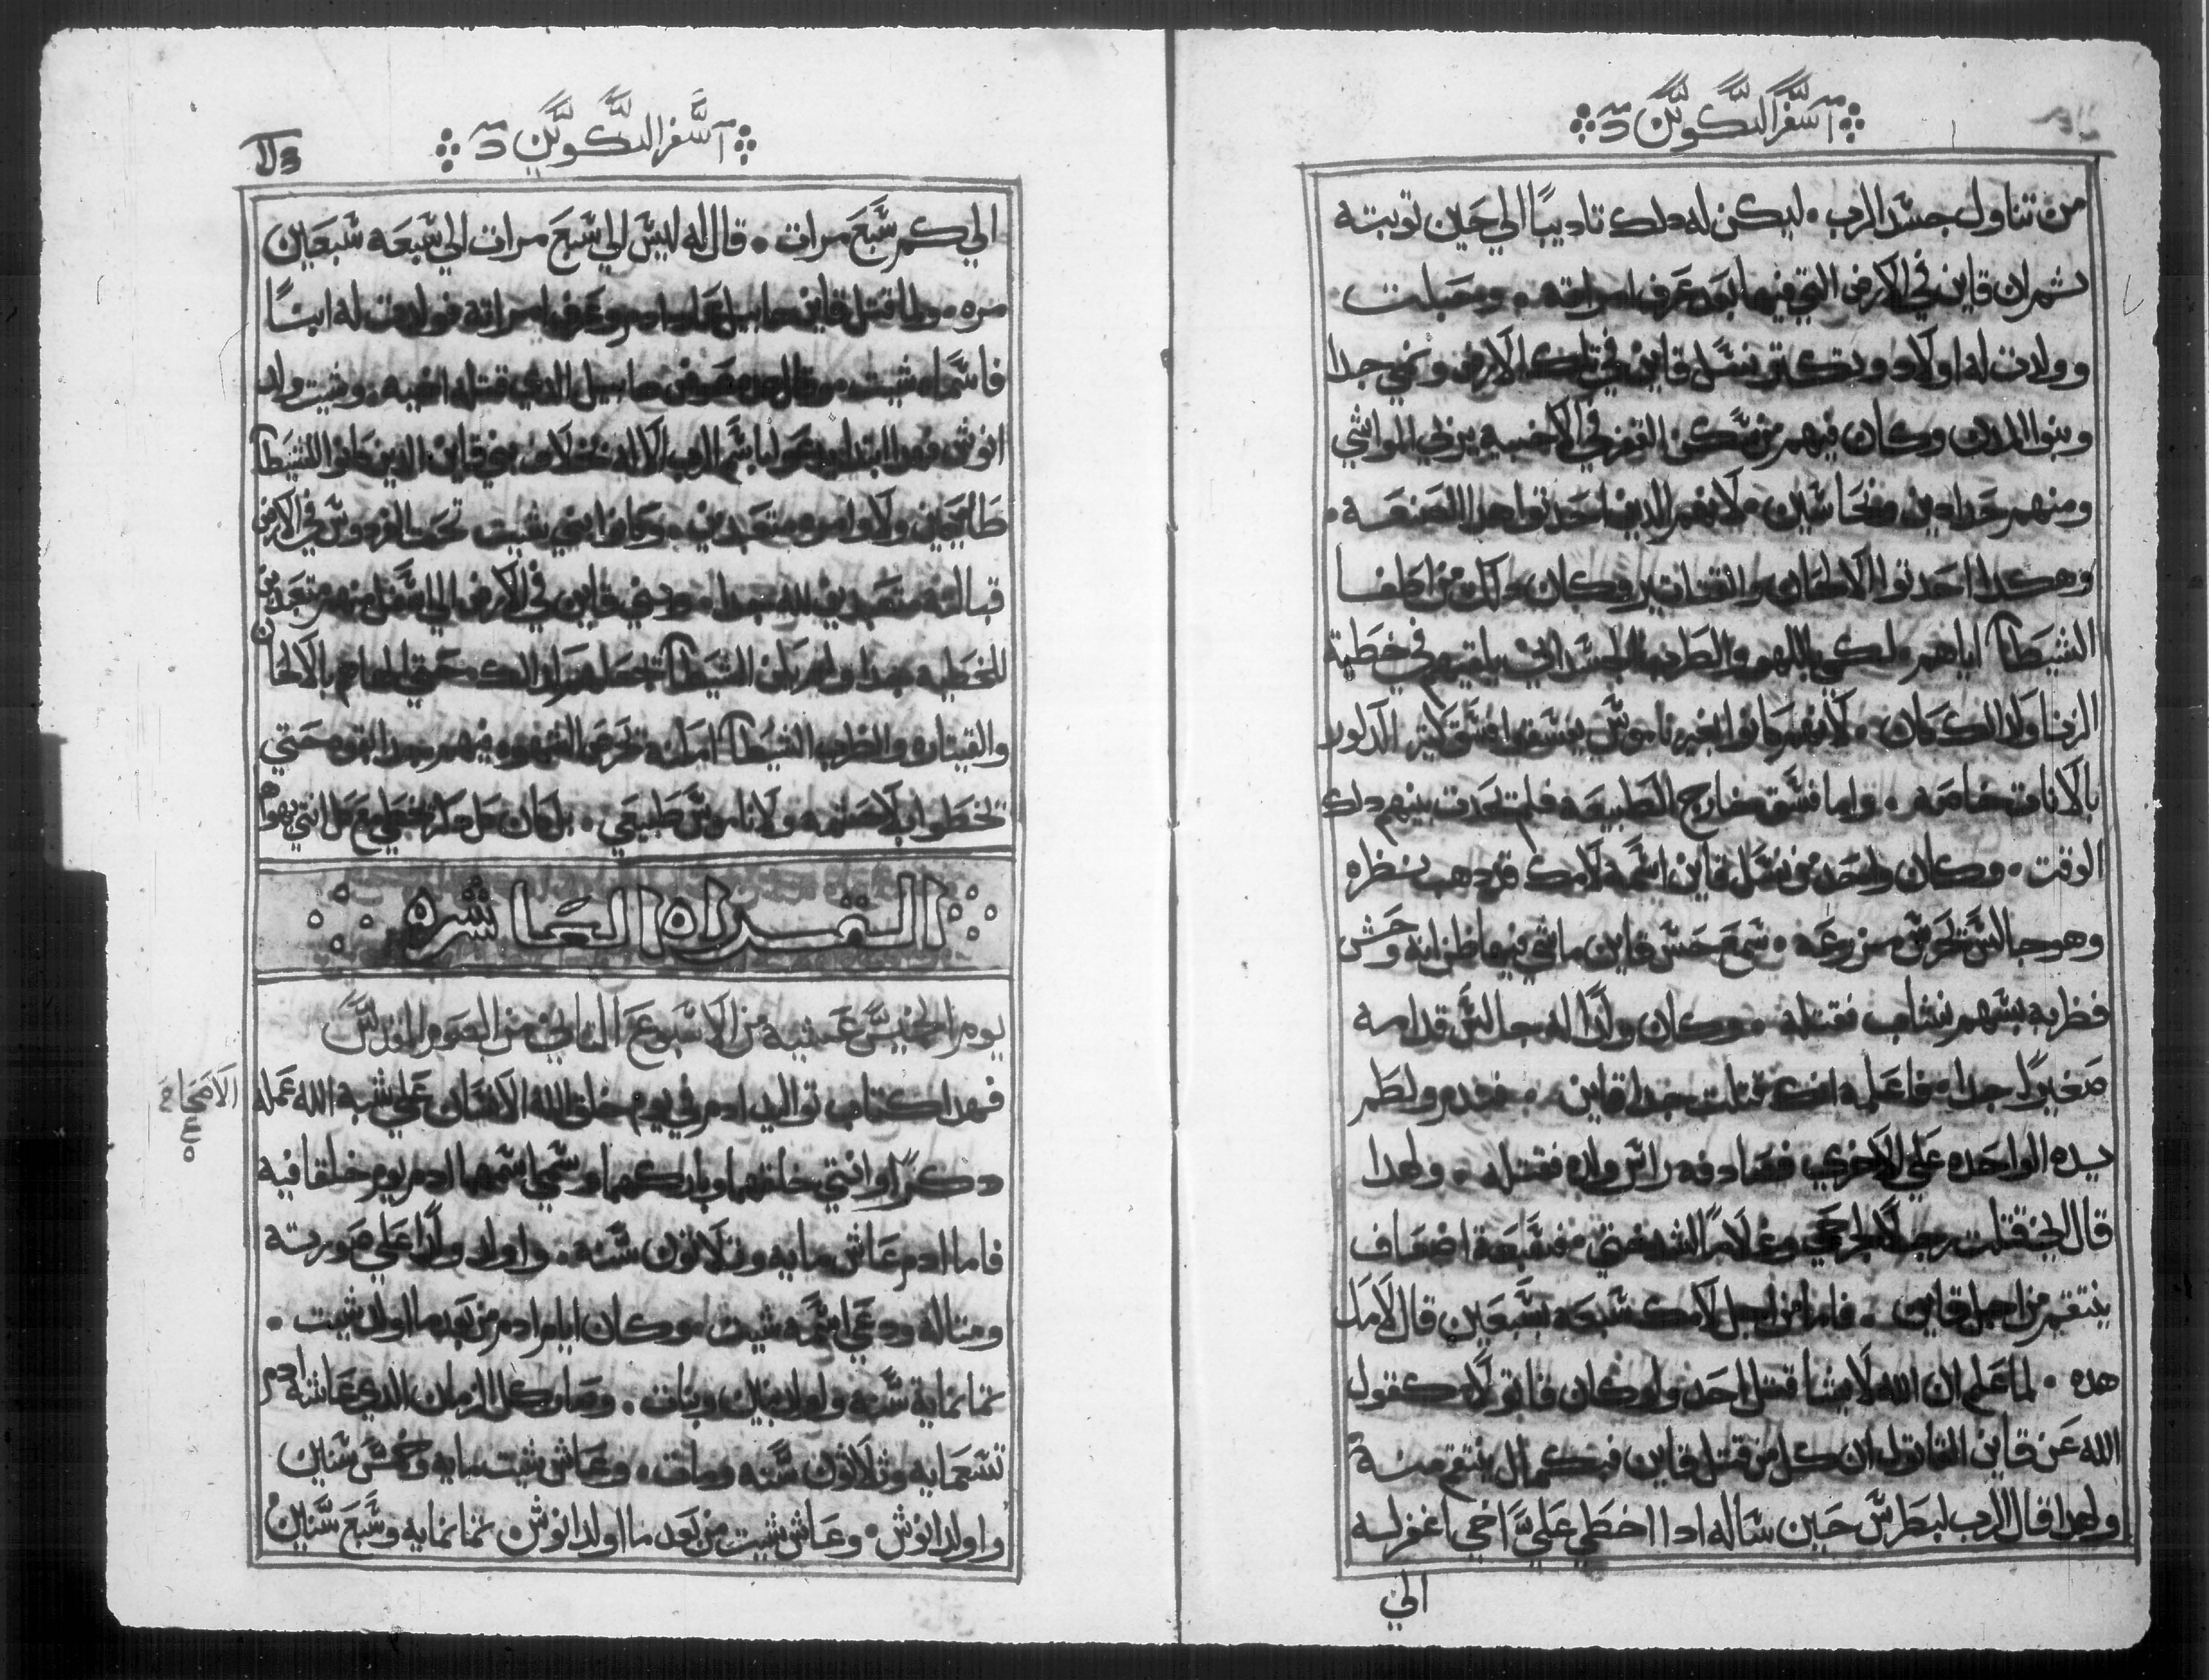 سفر التكوين
من تناول جسد الرب . ليكن له دلك تاديبًا الي حين توبته
تم ان قاين في الارض التي فيها بعد عرف امراته . وحبلت
وولدت له اولاد وتكتر نسل قاين في تلك الارض ونمي جدا
وبنوا المدن وكان فيهم من سكن القفر في الاخبيه يرعي المواشي
ومنهم حدادين ونحاسين . لانهم الدين احدتوا هدا الصنعه .
وهكدا احدتوا الالحان والقيتاتير وكان دلك من اطغا
الشيطان اياهم . لكي باللهو والطرب الجسداني يلقيهم في خطية
الزنا ولدلك كان . لانهم كانوا بغير ناموس يفسقوا فسق كتير الدكور
بالانات خاصه . واما فسق خارج الطبيعه فلم تحدت بينهم دلك
الوقت . وكان واحد من نسل قاين اسمه لامك قد دهب نظره
وهو جالس تحرس مزرعه . سمع حس قاين ماشي فيها ظن انه وحش
فظربه بسهم نشاب فقتله . وكان ولدًا له جالس قدامه
صغيرًا جدا . فاعلمه انك قتلت جدا قاين . فندم ولطم
بيده الواحده علي الاخري فصادف راس ولده فقتله . ولهدا
قال اني قتلت رجلًا لجرحي وغلامًا لشدختي فسبعة اضعاف
ينتقم من اجل قاين . فاما من اجل لامك سبعه بسبعين قال لامك
هده . لما علم ان الله لا يشا قتل احد ولو كان قاتولًا . كقول
الله عن قاين القاتول ان كل من قتل قاين فبكم ال ينتقم منه
ولهدا قال الرب لبطرس حين ساله ادا اخطي علي اخي اغفر له
الي
سفر التكوين
الي كم سبع مرات . قال له ليس الي سبع مرات الي سبعه سبعين
مره . ولما قتل قاين هابيل عاد ادم وعرف امراته فولدت له ابنًا
فاسماه شيت . وقال هدا عوض هابيل الدي قتله اخيه . وشيت ولد
انوش فهدا ابتدا يدعوا باسم الرب الاله بخلاف بني قاين الدين كانوا للشيطان
طايعين ولاوامره متعبدين . وكانوا بني شيت تحت الفردوس في الارض
قبالته متعبدين لله جدا . وبني قاين في الارض الي اسفل منهم متعبدين
للخطيه جدا ولم يزل الشيطان لدلك حتي بالالحان
والقيتاره والطرب الشيطان تحرص الشهوه فيهم جدا بقوه حتي
تخطوا بلا حشمه ولا ناموس طبيعي . بل كان كل دكر يخطي مع كل انتي يهواها
القراه العاشره
يوم الخميس عشيه من الاسبوع التاني من الصوم المقدس
فهدا كتاب تواليد ادم في يوم خلق الله الانسان علي شبه الله عمله
الاصحاح
دكرًا وانتي خلقهما وباركهما وسمي اسمهما ادم يوم خلقا فيه
فاما ادم عاش مايه وتلاتون سنه . واولد ولدًا علي صورته
ومتاله ودعي اسمه شيت . وكان ايام ادم من بعد ما اولد شيت .
تمانماية سنه واولد بنين وبنات . وصار كل الزمان الدي عاشه ادم
تسعمايه وتلاتون سنه ومات . وعاش شيت مايه وخمس سنين
واولد انوش . وعاش شيت من بعد ما اولد انوش . تمانمايه وسبع سنين